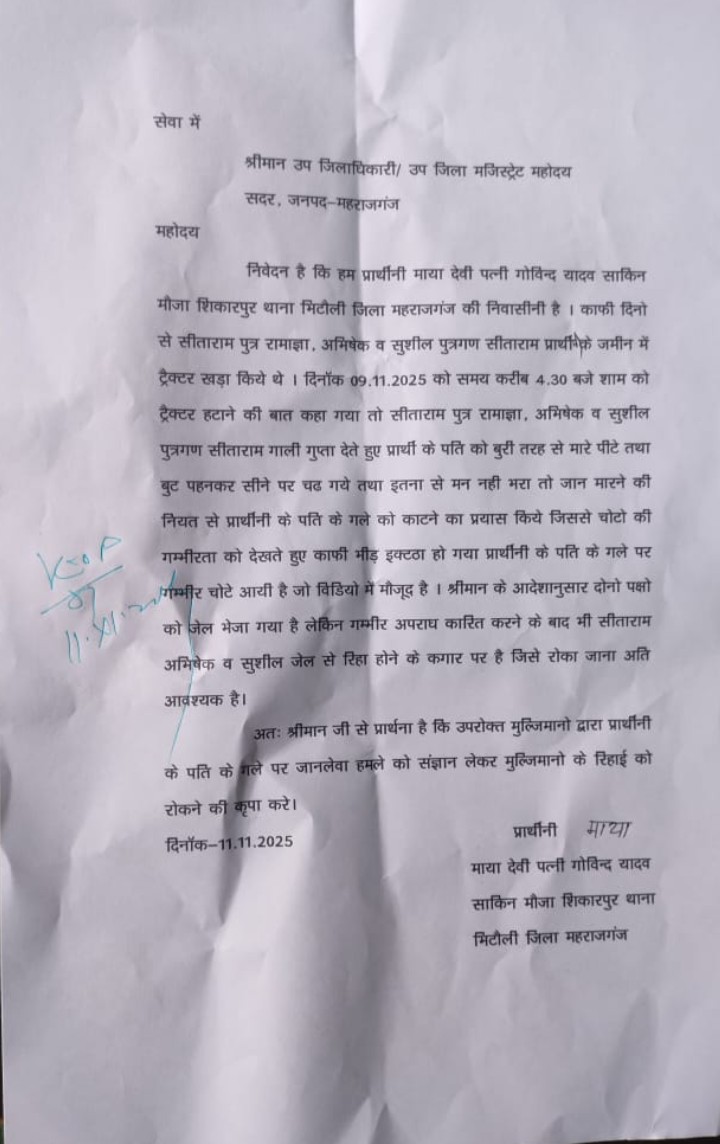 सेवा में
श्रीमान उप जिलाधिकारी/ उप जिला मजिस्ट्रेट महोदय
सदर, जनपद–महराजगंज
महोदय
निवेदन है कि हम प्रार्थीनी माया देवी पत्नी गोविन्द यादव साकिन
मौजा शिकारपुर थाना भिटौली जिला महराजगंज की निवासीनी है । काफी दिनो
से सीताराम पुत्र रामाज्ञा, अभिषेक व सुशील पुत्रगण सीताराम प्रार्थी के जमीन में
ट्रैक्टर खड़ा किये थे । दिनॉक 09.11.2025 को समय करीब 4.30 बजे शाम को
ट्रैक्टर हटाने की बात कहा गया तो सीताराम पुत्र रामाज्ञा, अभिषेक व सुशील
पुत्रगण सीताराम गाली गुप्ता देते हुए प्रार्थी के पति को बुरी तरह से मारे पीटे तथा
बुट पहनकर सीने पर चढ गये तथा इतना से मन नही भरा तो जान मारने की
नियत से प्रार्थीनी के पति के गले को काटने का प्रयास किये जिससे चोटो की
गम्भीरता को देखते हुए काफी भीड़ इक्टठा हो गया प्रार्थीनी के पति के गले पर
गम्भीर चोटे आयी है जो विडियो में मौजूद है । श्रीमान के आदेशानुसार दोनो पक्षो
को जेल भेजा गया है लेकिन गम्भीर अपराध कारित करने के बाद भी सीताराम
अभिषेक व सुशील जेल से रिहा होने के कगार पर है जिसे रोका जाना अति
आवश्यक है।
अतः श्रीमान जी से प्रार्थना है कि उपरोक्त मुल्जिमानो द्वारा प्रार्थीनी
के पति के गले पर जानलेवा हमले को संज्ञान लेकर मुल्जिमानो के रिहाई को
रोकने की कृपा करे।
दिनॉक–11.11.2025
प्रार्थीनी माया
माया देवी पत्नी गोविन्द यादव
साकिन मौजा शिकारपुर थाना
भिटौली जिला महराजगंज